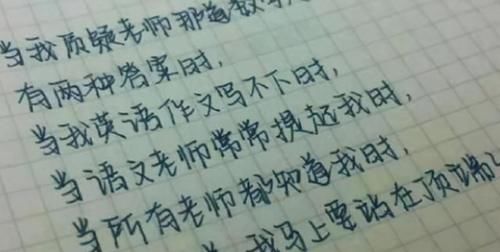 当我质疑老师那道数
有两种答案时，
当我英语作文写不下时，
当语文老师常常提起我时，
当所有老师都知道我时，
当我马上要站在顶端